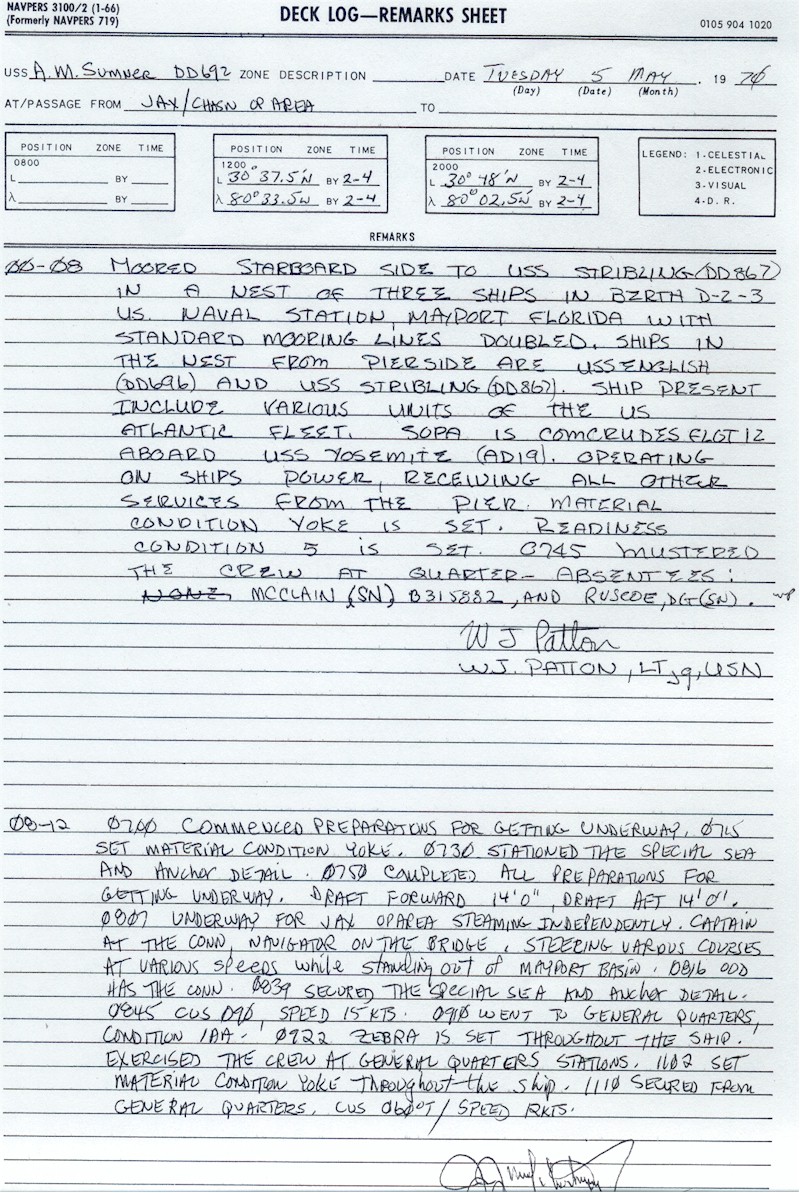 NAVPERS 3100/2 (1-66)
(Formerly NAVPERS 719)
DECK LOG—REMARKS SHEET
0105 904 1020
USS A.M. SUMNER DD692 ZONE DESCRIPTION DATE TUESDAY 5 MAY , 19 70
(Day) (Date) (Month)
AT/PASSAGE FROM JAX/CHASN OP AREA TO
POSITION ZONE TIME
0800
L BY
λ BY
POSITION ZONE TIME
1200
L 30° 37.5'N BY 2-4
λ 80° 33.5W BY 2-4
POSITION ZONE TIME
2000
L 30° 48'N BY 2-4
λ 80° 02.5W BY 2-4
LEGEND: 1.CELESTIAL
2.ELECTRONIC
3.VISUAL
4.D.R.
REMARKS
00-08 MOORED STARBOARD SIDE TO USS STRIBLING (DD867)
IN A NEST OF THREE SHIPS IN BERTH D-2-3
US. NAVAL STATION, MAYPORT FLORIDA WITH
STANDARD MOORING LINES DOUBLED. SHIPS IN
THE NEST FROM PIERSIDE ARE USS ENGLISH
(DD696) AND USS STRIBLING (DD867). SHIP PRESENT
INCLUDE VARIOUS UNITS OF THE US
ATLANTIC FLEET. SOPA IS COMCRUDESFLOT 12
ABOARD USS YOSEMITE (AD19). OPERATING
ON SHIPS POWER, RECEIVING ALL OTHER
SERVICES FROM THE PIER. MATERIAL
CONDITION YOKE IS SET. READINESS
CONDITION 5 IS SET. 0745 MUSTERED
THE CREW AT QUARTER— ABSENTEES:
NONE, MCCLAIN (SN) B315882, AND RUSCOE, DGT (SN). wp
W J Patton
W.J. PATTON, LTjg, USN
08-12 0700 COMMENCED PREPARATIONS FOR GETTING UNDERWAY. 0715
SET MATERIAL CONDITION YOKE. 0730 STATIONED THE SPECIAL SEA
AND ANCHOR DETAIL. 0750 COMPLETED ALL PREPARATIONS FOR
GETTING UNDERWAY. DRAFT FORWARD 14'0", DRAFT AFT 14'0".
0807 UNDERWAY FOR JAX OPAREA STEAMING INDEPENDENTLY. CAPTAIN
AT THE CONN, NAVIGATOR ON THE BRIDGE. STEERING VAROUS COURSES
AT VARIOUS SPEEDS while standing out of MAYPORT BASIN. 0816 OOD
HAS THE CONN. 0839 SECURED THE SPECIAL SEA AND ANCHOR DETAIL.
0845 CUS 090, SPEED 15 KTS. 0910 WENT TO GENERAL QUARTERS,
CONDITION 1AA. 0922 ZEBRA IS SET THROUGHOUT THE SHIP.
EXERCISED THE CREW AT GENERAL QUARTERS STATIONS. 1102 SET
MATERIAL CONDITION YOKE THROUGHOUT the ship. 1110 SECURED FROM
GENERAL QUARTERS. CUS 060°T/SPEED KTS.